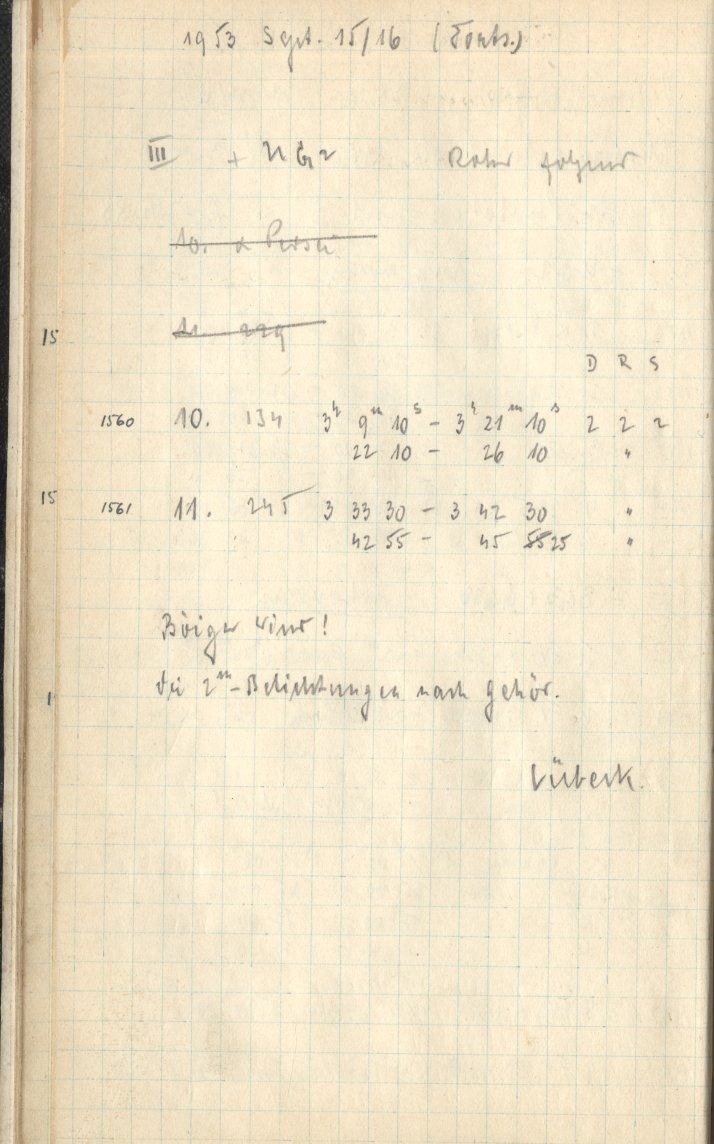 1953 Sept. 15/16 (Forts.)
III + UG2 Rohr folgend
10. α Persei
11. 229
D R S
1560 10. 134 3h 9m 10s – 3h 21m 10s 2 2 2
22 10 – 26 10 "
1561 11. 245 3 33 30 – 3 42 30 "
42 55 – 45 55 25 "
Böiger Wind!
Die 2m-Belichtungen nach Gehör.
Lübeck.
15
15
1